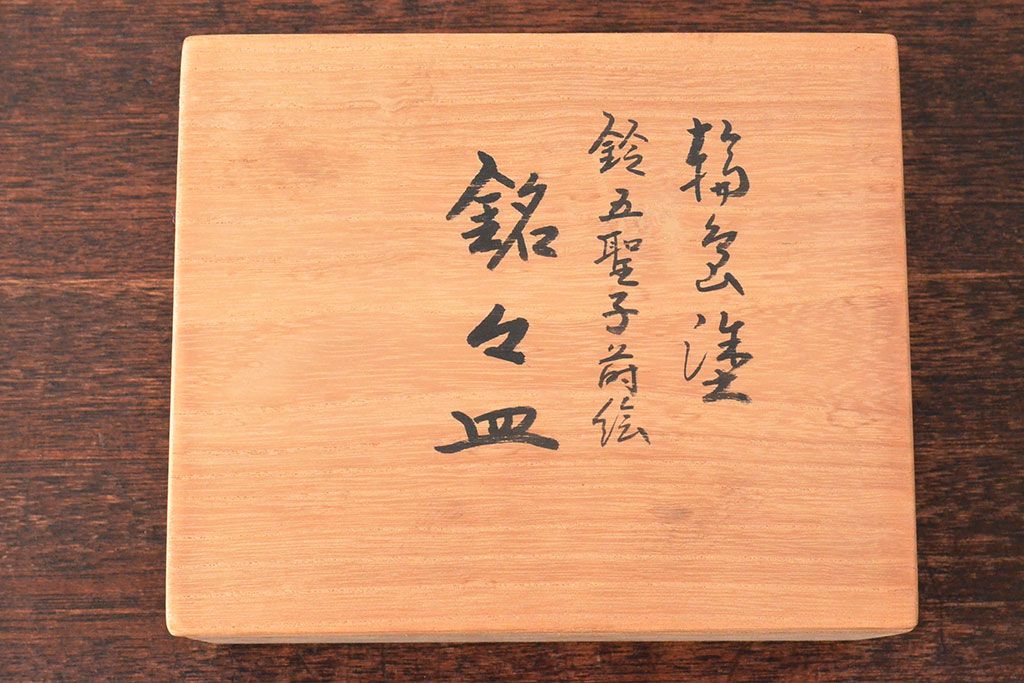 輪島塗
鈴五聖子蒔絵
銘々皿